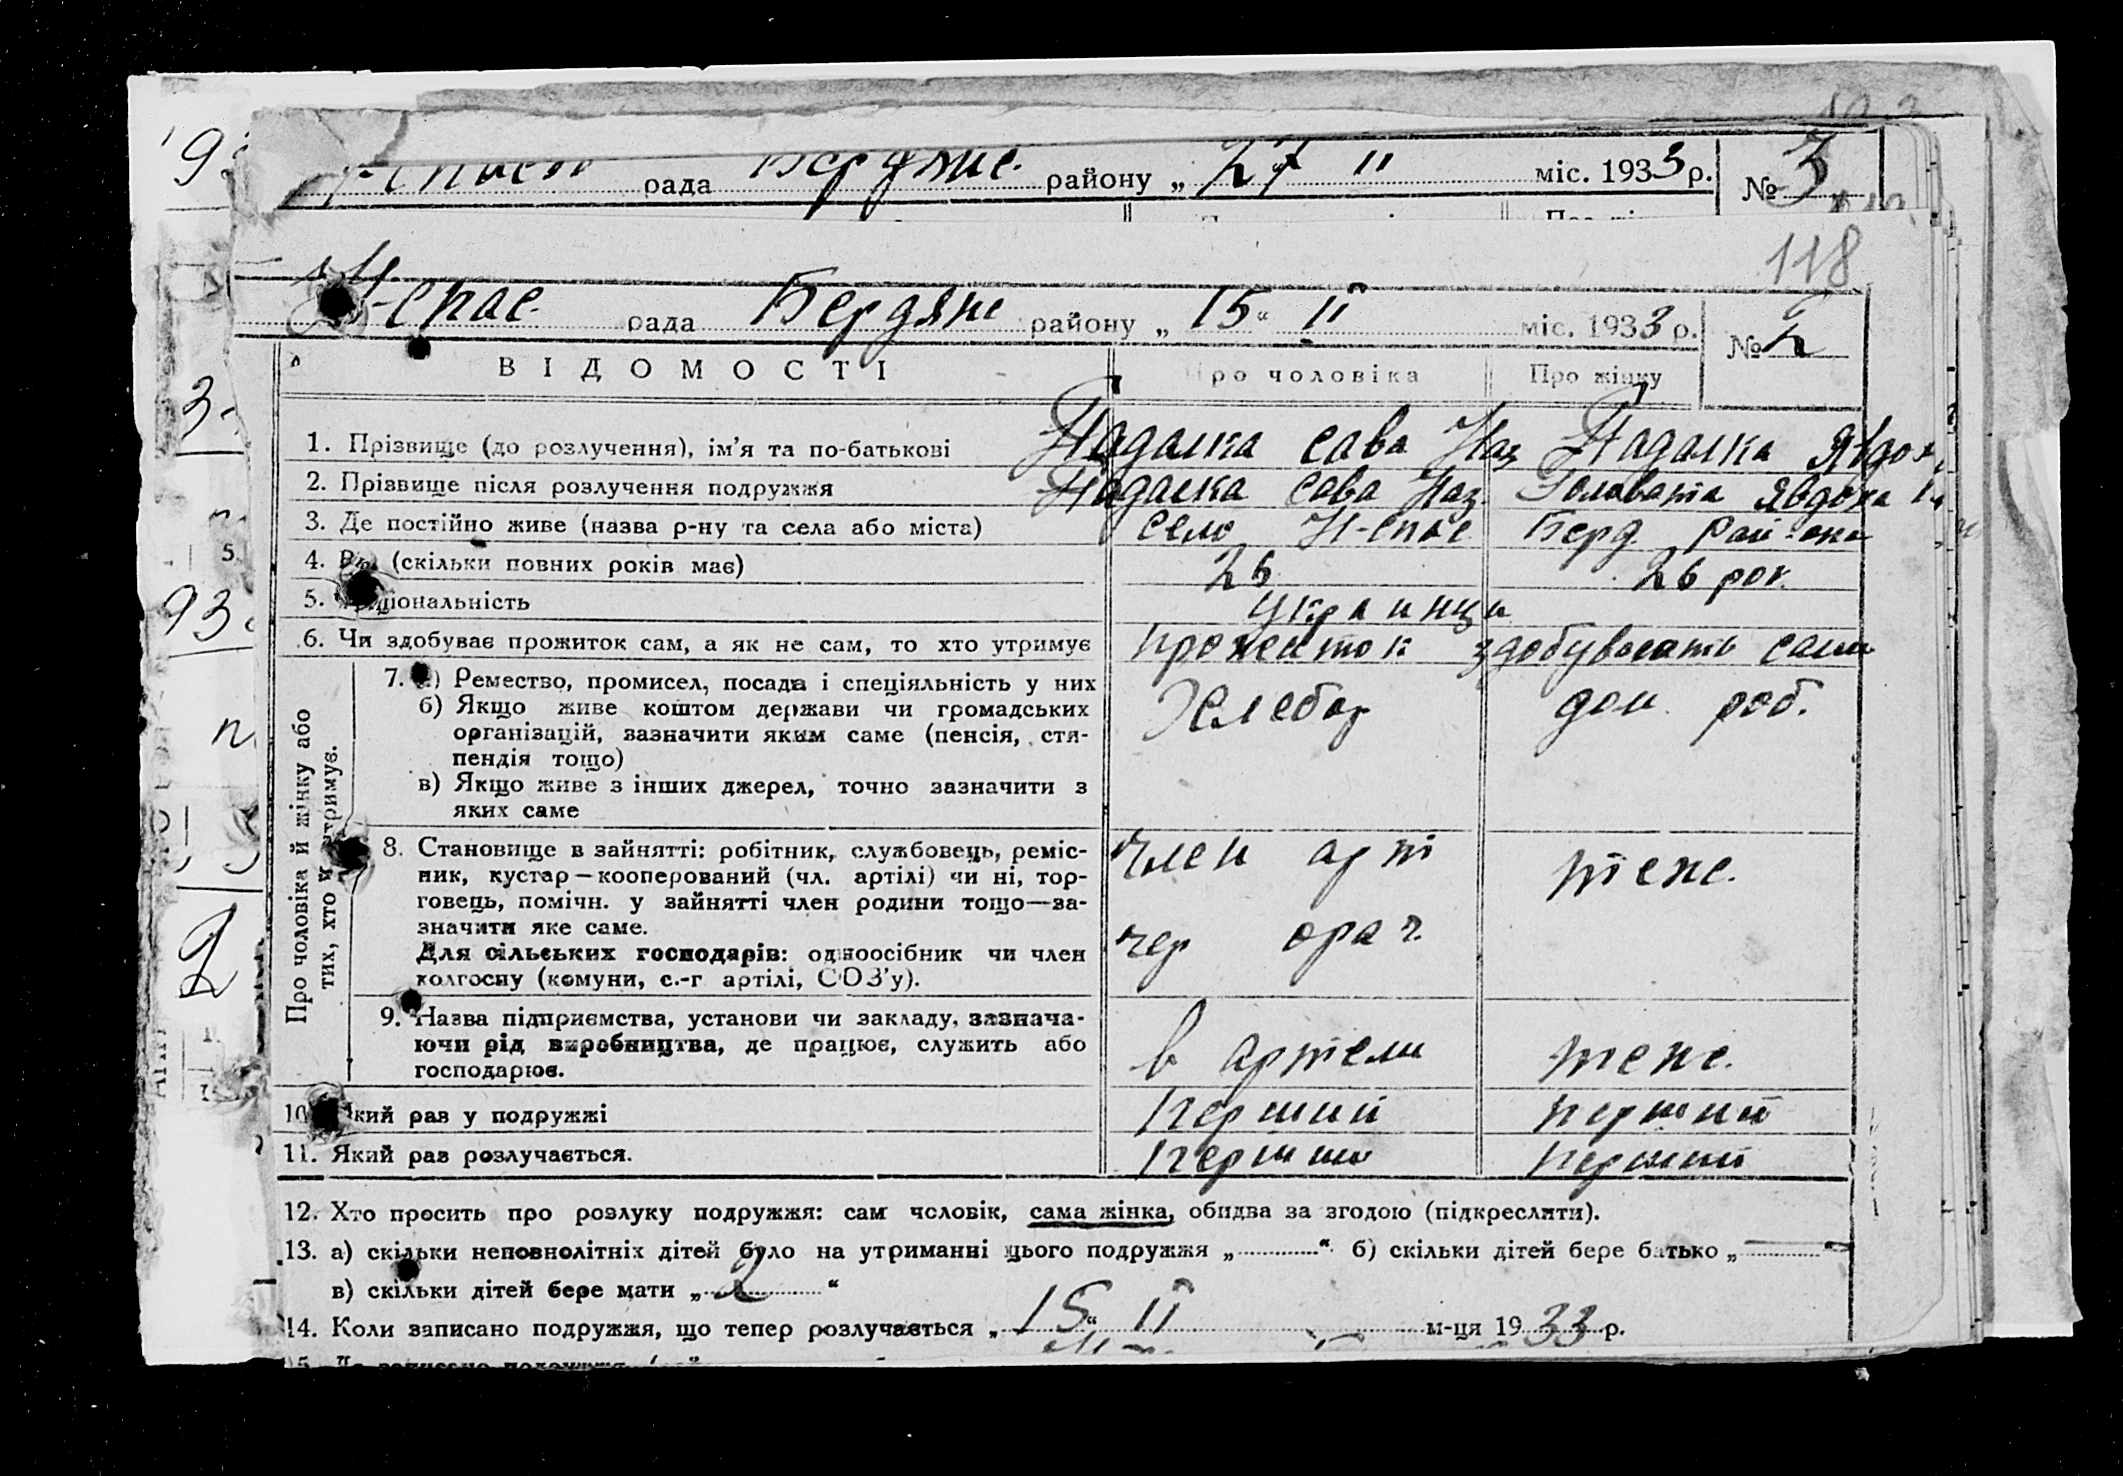 рада Бердянс. району „ 27 ІІ міс. 1933 р. № 3
118
Н-спас. рада Бердянс району „ 15 “ ІІ міс. 1933 р. № 2
ВІДОМОСТІ Про чоловіка Про жінку
1. Прізвище (до розлучення), ім’я та по-батькові Падалка Сава Наз Падалка Явдох
2. Прізвище після розлучення подружжя Падалка Сава Наз. Головата Явдоха
3. Де постійно живе (назва р-ну та села або міста) село Н-спас Берд район
4. Вік (скільки повних років має) 26 26 рок.
5. Національність украинци
6. Чи здобуває прожиток сам, а як не сам, то хто утримує прожиток здобувають сами
Про чоловіка й жінку або
тих, хто їх утримує.
7. а) Ремество, промисел, посада і спеціяльність у них Хлебор дом. роб.
б) Якщо живе коштом держави чи громадських
організацій, зазначити яким саме (пенсія, сти-
пендія тощо)
в) Якщо живе з інших джерел, точно зазначити з
яких саме
8. Становище в зайнятті: робітник, службовець, реміс- член арт теже.
ник, кустар — кооперований (чл. артілі) чи ні, тор-
говець, помічн. у зайнятті член родини тощо—за-
значити яке саме. чер орач.
Для сільських господарів: одноосібник чи член
колгоспу (комуни, с.-г артілі, СОЗ’у).
9. Назва підприємства, установи чи закладу, зазнача-
ючи рід виробництва, де працює, служить або в артели теже.
господарює.
10. Який раз у подружжі перший перший
11. Який раз розлучається. перший перший
12. Хто просить про розлуку подружжя: сам чоловік, сама жінка, обидва за згодою (підкреслити).
13. а) скільки неповнолітніх дітей було на утриманні цього подружжя „ “ б) скільки дітей бере батько „ — “
в) скільки дітей бере мати „ 2 “
14. Коли записано подружжя, що тепер розлучається „ 15 “ ІІ м-ця 1933 р.